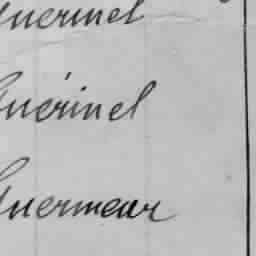 Guerinel
Guérinel
Guermeur